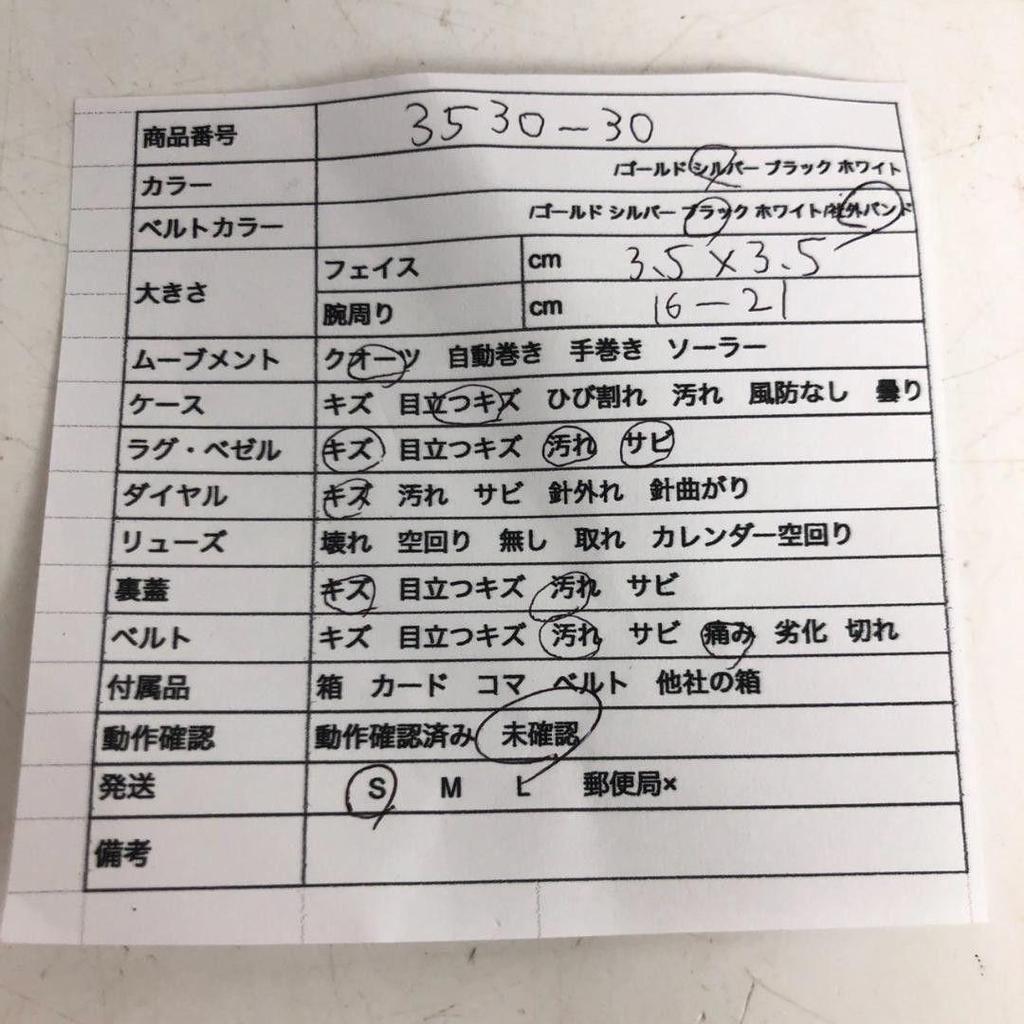 商品番号 3530-30
カラー /ゴールド シルバー ブラック ホワイト
ベルトカラー /ゴールド シルバー ブラック ホワイト/社外バンド
大きさ フェイス cm 3.5×3.5
腕周り cm 16-21
ムーブメント クオーツ 自動巻き 手巻き ソーラー
ケース キズ 目立つキズ ひび割れ 汚れ 風防なし 曇り
ラグ・ベゼル キズ 目立つキズ 汚れ サビ
ダイヤル キズ 汚れ サビ 針外れ 針曲がり
リューズ 壊れ 空回り 無し 取れ カレンダー空回り
裏蓋 キズ 目立つキズ 汚れ サビ
ベルト キズ 目立つキズ 汚れ サビ 痛み 劣化 切れ
付属品 箱 カード コマ ベルト 他社の箱
動作確認 動作確認済み 未確認
発送 S M L 郵便局×
備考